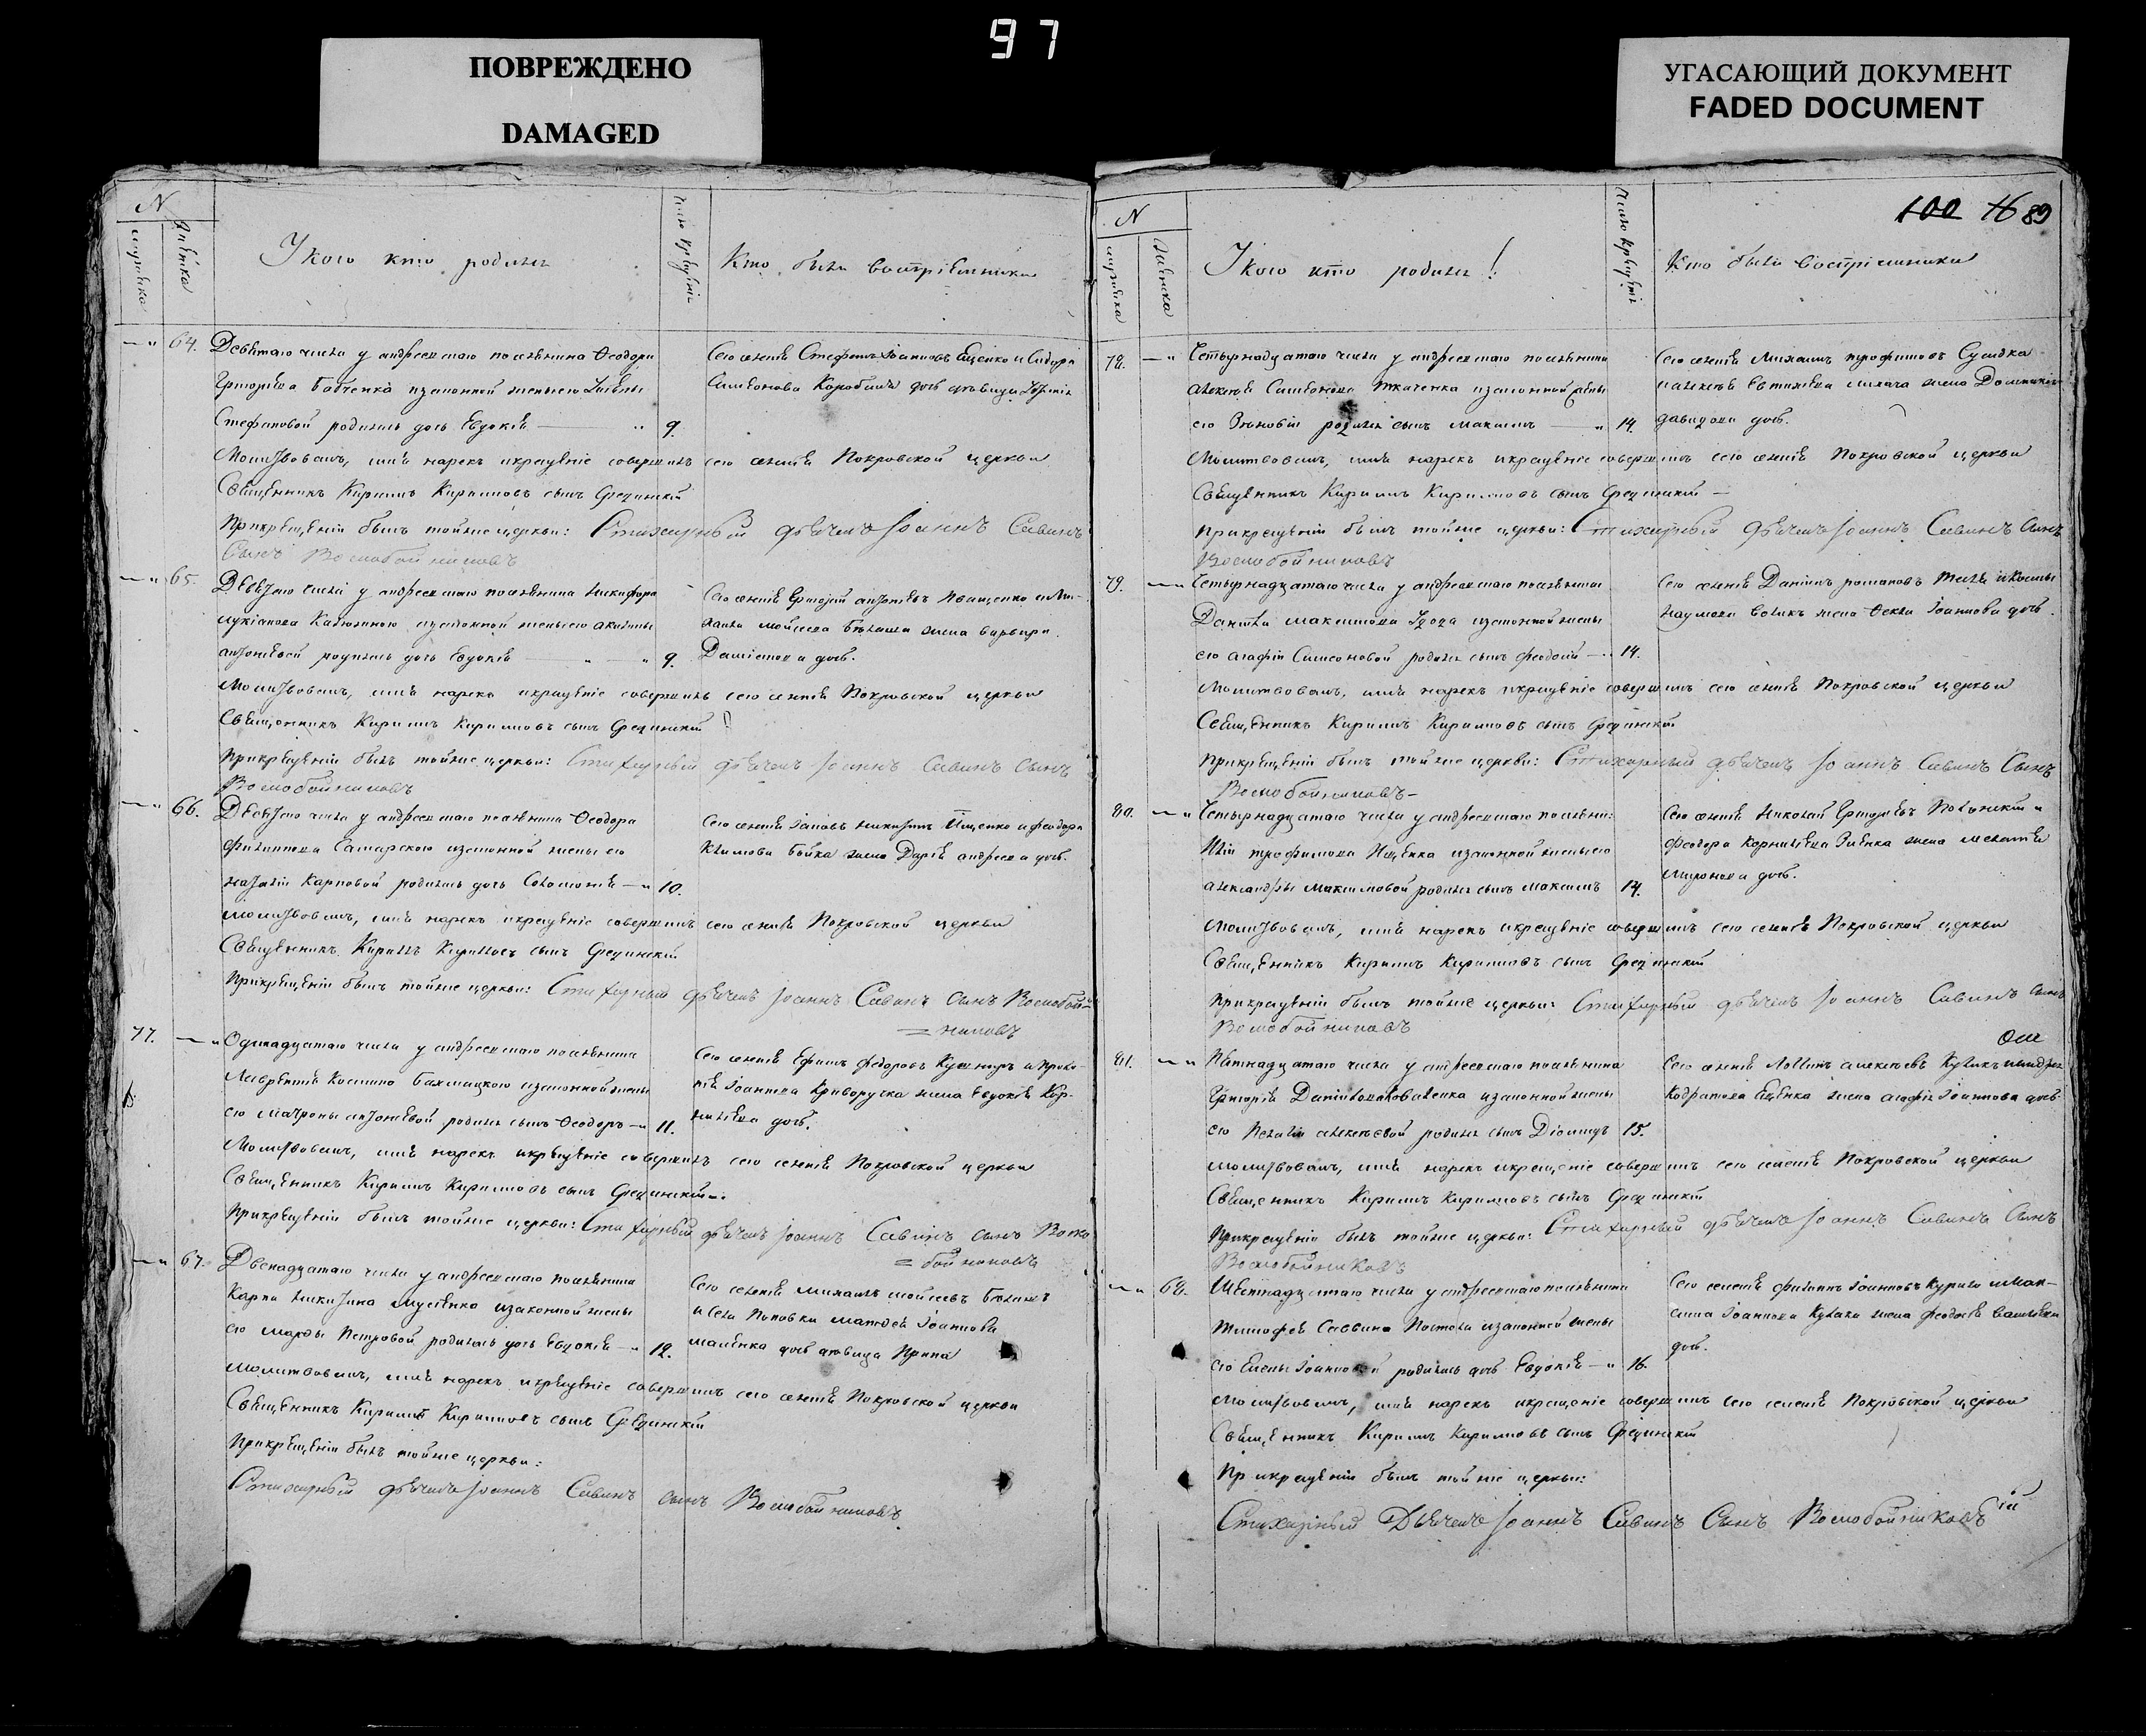 97
ПОВРЕЖДЕНО
DAMAGED
УГАСАЮЩИЙ ДОКУМЕНТ
FADED DOCUMENT
N
У кого кто родился
Число крещенія
Кто были воспріемники
64. Девятаго числа у андреевскаго поселянина Ѳеодора
Григорієва изаконной жены его
Стефановой родилась дочь Евдокія 9.
Сего селенія Стефанъ Іоанновъ Ещенко и Сидора
Симеонова дочь дѣвица
Молитвовалъ, имя нарекъ икрещеніе совершилъ сего селенія Покровской церкви
Священникъ Кирилъ Кириловъ сынъ
Прикрещеніи былъ тойже церкви: Стихарный дьячекъ Іоаннъ Савинъ
Сынъ Воскобойниковъ
65. Девятаго числа у андреевскаго поселянина Никифора
изаконной жены его акилины
антоніевой родилась дочь Евдокія 9.
Сего селенія Григорій антоніевъ Иващенко
Моисеева жена варвара
Даміанова дочь.
Молитвовалъ, имя нарекъ икрещеніе совершилъ сего селенія Покровской церкви
Священникъ Кирилъ Кириловъ сынъ
Прикрещеніи былъ тойже церкви: Стихарный дьячекъ Іоаннъ Савинъ Сынъ
Воскобойниковъ
66. Девятаго числа у андреевскаго поселянина Ѳеодора
Филиппова Самарскаго изаконной жены его
наталіи Карповой родилась дочь Соломонія 10.
Сего селенія Іаковъ никитинъ Ищенко и феодора
Климова бойка жена Дарія андреева дочь.
Молитвовалъ, имя нарекъ икрещеніе совершилъ сего селенія Покровской церкви
Священникъ Кирилъ Кириловъ сынъ
Прикрещеніи былъ тойже церкви: Стихарный дьячекъ Іоаннъ Савинъ Сынъ Воскобой=
= никовъ
77. Одинадцатаго числа у андреевскаго поселянина
Лаврентія Космина Бахмацкаго изаконной жены
его Матроны антоніевой родился сынъ Ѳеодоръ 11.
Сего селенія Ефимъ федоровъ Кушниръ и Проко-
пія Іоаннова Криворучка жена Евдокія Кор-
ниліева дочь.
Молитвовалъ, имя нарекъ икрещеніе совершилъ сего селенія Покровской церкви
Священникъ Кирилъ Кириловъ сынъ
Прикрещеніи былъ тойже церкви: Стихарный дьячекъ Іоаннъ Савинъ Сынъ Воско
= бойниковъ
67. Двенадцатаго числа у андреевскаго поселянина
Карпа никитина Мусіенко изаконной жены
его марѳы Петровой родилась дочь Евдокія 12.
Сего селенія Михаилъ моисеевъ
и села Поповки матѳея Іоаннова
дочь дѣвица Ирина
Молитвовалъ, имя нарекъ икрещеніе совершилъ сего селенія Покровской церкви
Священникъ Кирилъ Кириловъ сынъ
Прикрещеніи былъ тойже церкви:
Стихарный дьячекъ Іоаннъ Савинъ сынъ Воскобойниковъ
100 16 89
N
У кого кто родился!
Число крещеніе
Кто были воспріемники
78. Четырнадцатаго числа у андреевскаго поселянина
алексѣя Симеонова Ткаченка изаконной жены
его Зѣновіи родился сынъ Максимъ 14.
Сего селенія Михаилъ трофимовъ
жена Домникія
давидова дочь.
Молитвовалъ, имя нарекъ икрещеніе совершилъ сего селенія Покровской церкви
Священникъ Кирилъ Кириловъ сынъ
Прикрещеніи былъ тойже церкви: Стихарный дьячекъ Іоаннъ Савинъ Сынъ
Воскобойниковъ
79. Четырнадцатаго числа у андреевскаго поселянина
Даніила Максимова изаконной жены
его агафіи Симеоновой родился сынъ феодосій 14.
Сего селенія Даніилъ романовъ и Космы
Наумова жена Ѳекла Іоаннова дочь.
Молитвовалъ, имя нарекъ икрещеніе совершилъ сего селенія Покровской церкви
Священникъ Кирилъ Кириловъ сынъ
Прикрещеніи былъ тойже церкви: Стихарный дьячекъ Іоаннъ Савинъ Сынъ
Воскобойниковъ
80. Четырнадцатаго числа у андреевскаго поселяни:
Иліи трофимова Ищенка изаконной жены его
александры Максимовой родился сынъ Максимъ 14.
Сего селенія Николай Григоріевъ и
Феодора Корниліева жена
Миронова дочь.
Молитвовалъ, имя нарекъ икрещеніе совершилъ сего селенія Покровской церкви
Священникъ Кирилъ Кириловъ сынъ
Прикрещеніи былъ тойже церкви: Стихарный дьячекъ Іоаннъ Савинъ Сынъ
Воскобойниковъ
81. Пятнадцатаго числа у андреевскаго поселянина
Григорія Даніилова Коваленка изаконной жены
его Пелагіи алексѣевой родился сынъ Діомидъ 15.
Сего селенія Логгинъ алексѣевъ
Кодратова Ещенка жена агафія Іоаннова дочь
Молитвовалъ, имя нарекъ икрещеніе совершилъ сего селенія Покровской церкви
Священникъ Кирилъ Кириловъ сынъ
Прикрещеніи былъ тойже церкви: Стихарный дьячекъ Іоаннъ Савинъ Сынъ
Воскобойниковъ
68. Шестнадцатаго числа у андреевскаго поселянина
Тимофея Саввина изаконной жены
его Елены Іоанновой родилась дочь Евдокія 16.
Сего селенія филиппъ Іоанновъ
Іоаннова жена феодосія василіева
дочь.
Молитвовалъ, имя нарекъ икрещеніе совершилъ сего селенія Покровской церкви
Священникъ Кирилъ Кириловъ сынъ
Прикрещеніи былъ тойже церкви:
Стихарный Дьячекъ Іоаннъ Савинъ Сынъ Воскобойниковъ